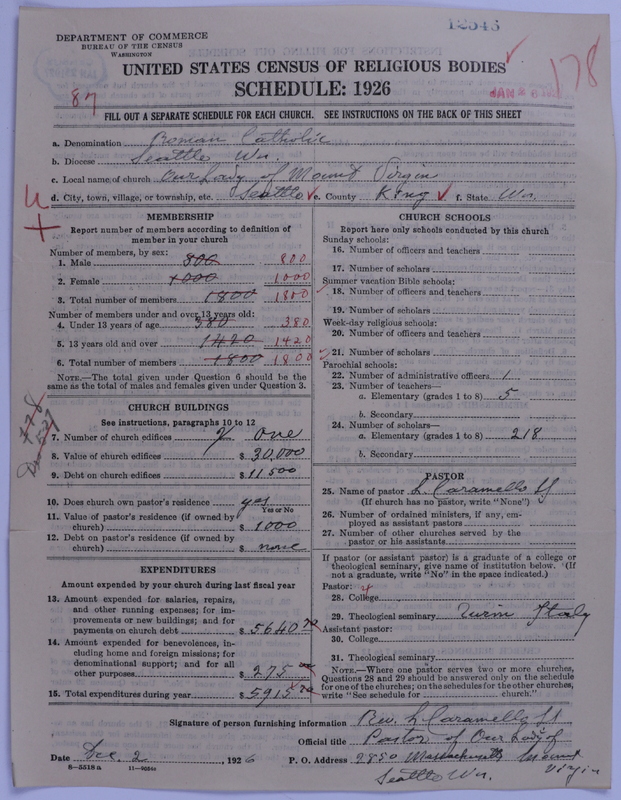 12545
DEPARTMENT OF COMMERCE
BUREAU OF THE CENSUS
WASHINGTON
UNITED STATES CENSUS OF RELIGIOUS BODIES
SCHEDULE: 1926
87
JAN
178
FILL OUT A SEPARATE SCHEDULE FOR EACH CHURCH. SEE INSTRUCTIONS ON THE BACK OF THIS SHEET
a. Denomination Roman Catholic
b. Diocese Seattle Wn.
c. Local name of church Our Lady of Mount Virgin
d. City, town, village, or township, etc. Seattle e. County King f. State Wn.
MEMBERSHIP
Report number of members according to definition of
member in your church
Number of members, by sex:
1. Male 800 800
2. Female 1000 1000
3. Total number of members 1800 1800
Number of members under and over 13 years old:
4. Under 13 years of age 380 380
5. 13 years old and over 1420 1420
6. Total number of members 1800 1800
NOTE.—The total given under Question 6 should be
same as the total of males and females given under Question 3.
CHURCH BUILDINGS
See instructions, paragraphs 10 to 12
7. Number of church edifices one
8. Value of church edifices $ 30,000
9. Debt on church edifices $ 11,500
10. Does church own pastor's residence yes
Yes or No
11. Value of pastor's residence (if owned by
church) $ 1000
12. Debt on pastor's residence (if owned by
church) $ none
EXPENDITURES
Amount expended by your church during last fiscal year
13. Amount expended for salaries, repairs,
and other running expenses; for im-
provements or new buildings; and for
payments on church debt $ 5640
14. Amount expended for benevolences, in-
cluding home and foreign missions; for
denominational support; and for all
other purposes $ 275
15. Total expenditures during year $ 5915
CHURCH SCHOOLS
Report here only schools conducted by this church
Sunday schools:
16. Number of officers and teachers
17. Number of scholars
Summer vacation Bible schools:
18. Number of officers and teachers
19. Number of scholars
Week-day religious schools:
20. Number of officers and teachers
21. Number of scholars
Parochial schools:
22. Number of administrative officers 1
23. Number of teachers—
a. Elementary (grades 1 to 8) 5
b. Secondary
24. Number of scholars—
a. Elementary (grades 1 to 8) 218
b. Secondary
PASTOR
25. Name of pastor L Caramello SJ
(If church has no pastor, write "None")
26. Number of ordained ministers, if any, em-
ployed as assistant pastors
27. Number of other churches served by the
pastor or his assistants
If pastor (or assistant pastor) is a graduate of a college or
theological seminary, give name of institution below. (If
not a graduate, write "No" in the space indicated.)
Pastor:
28. College
29. Theological seminary Turin Italy
Assistant pastor:
30. College
31. Theological seminary
NOTE.—Where one pastor serves two or more churches,
Questions 28 and 29 should be answered only on the schedule
for one of the churches; on the schedules for the other churches,
write "See schedule for church."
Signature of person furnishing information Rev. L Caramello SJ
Official title Pastor of Our Lady of
Mount Virgin
Date Dec. 2, 1926 P. O. Address 2850 Massachusetts
Seattle Wn.
8-5518a